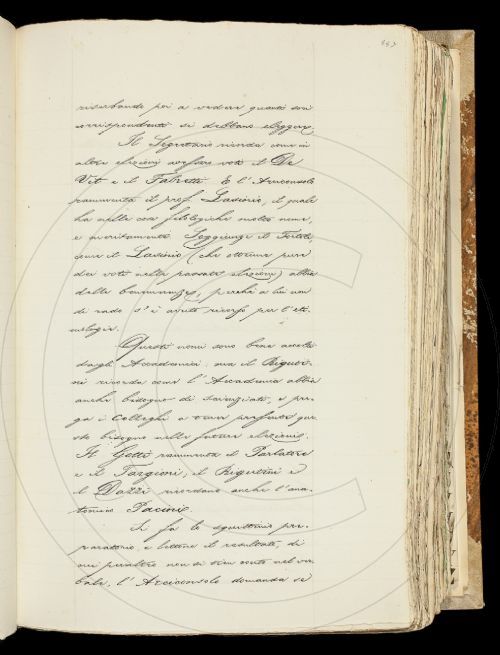 riserbando poi a vedere quanti soci
corrispondenti si debbano eleggere.
Il Segretario ricorda come in
altre elezioni avessero voti il De
Vit e il Fabretti. E l'Arciconsolo
rammenta il prof. Lasinio, il quale
ha nelle cose filologiche molto nome,
e meritamente. Soggiunge il Tortoli,
come il Lasinio (che ottenne pure
dei voti nella passata elezione) abbia
delle benemerenze, perché a lui non
di rado s'è avuto ricorso per l'eti-
mologia.
Questi nomi sono bene accolti
dagli Accademici: ma il Riguti-
ni ricorda come l'Accademia abbia
anche bisogno di Scienziati, e pre-
ga i Colleghi a tener presente que-
sto bisogno nelle future elezioni.
Il Gotti rammenta il Parlatore
e il Targioni; il Rigutini e
il Dazzi ricordano anche l'ana-
tomico Pacini.
Si fa lo squittinio pre-
paratorio, e lettone il resultato, di
cui peraltro non si tien conto nel ver-
bale, l'Arciconsolo domanda se